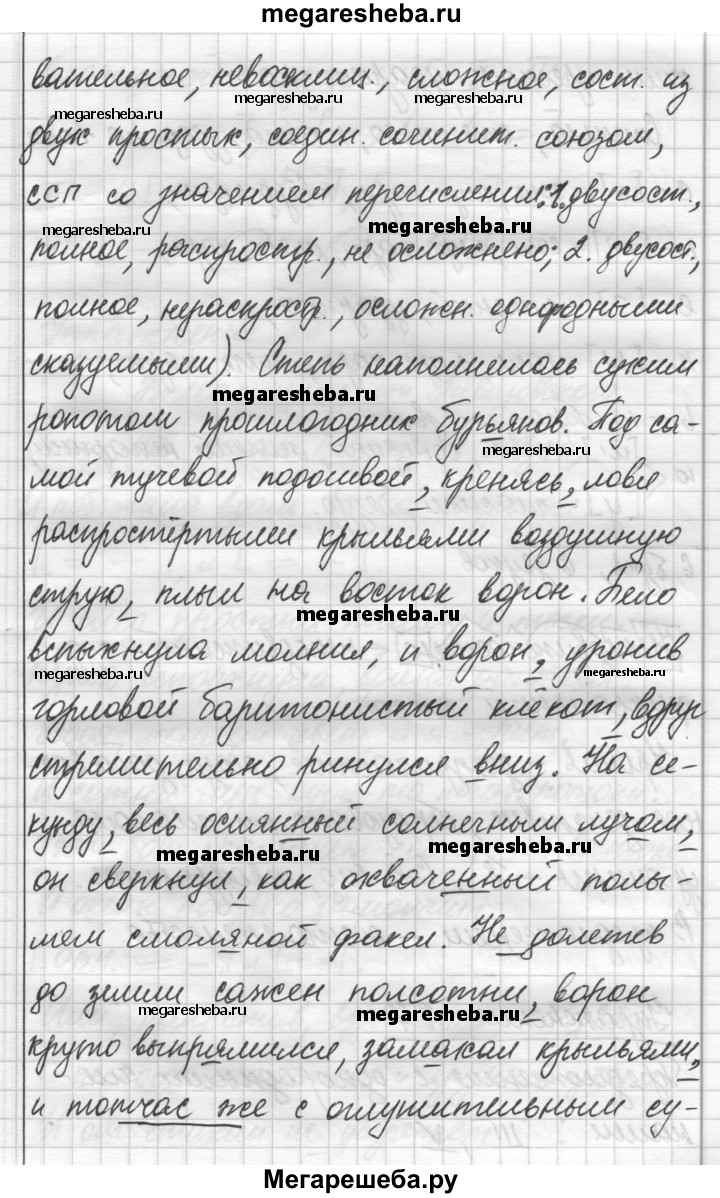 megaresheba.ru
вательное, невосклиц., сложное, сост. из
megaresheba.ru megaresheba.ru megaresheba.ru
двух простых, соедин. сочинит. союзом,
ССП со значением перечисления: 1. двусост.,
megaresheba.ru megaresheba.ru
полное, распростр., не осложнено; 2. двусост.,
полное, нераспростр., осложн. однородными
сказуемыми). Степь наполнилась сухим
megaresheba.ru
ропотом прошлогодних бурьянов. Под са-
megaresheba.ru
мой тучевой подошвой, кренясь, ловя
распростёртыми крыльями воздушную
струю, плыл на восток ворон. Бело
megaresheba.ru
вспыхнула молния, и ворон, уронив
megaresheba.ru megaresheba.ru
горловой баритонистый клёкот, вдруг
стремительно ринулся вниз. На се-
кунду, весь осиянный солнечным лучом,
megaresheba.ru megaresheba.ru
он сверкнул, как охваченный полы-
мем смоляной факел. Не долетев
до земли сажен полсотни, ворон
megaresheba.ru megaresheba.ru
круто выпрямился, замахал крыльями,
и тотчас же с оглушительным су-
Мегарешеба.ру